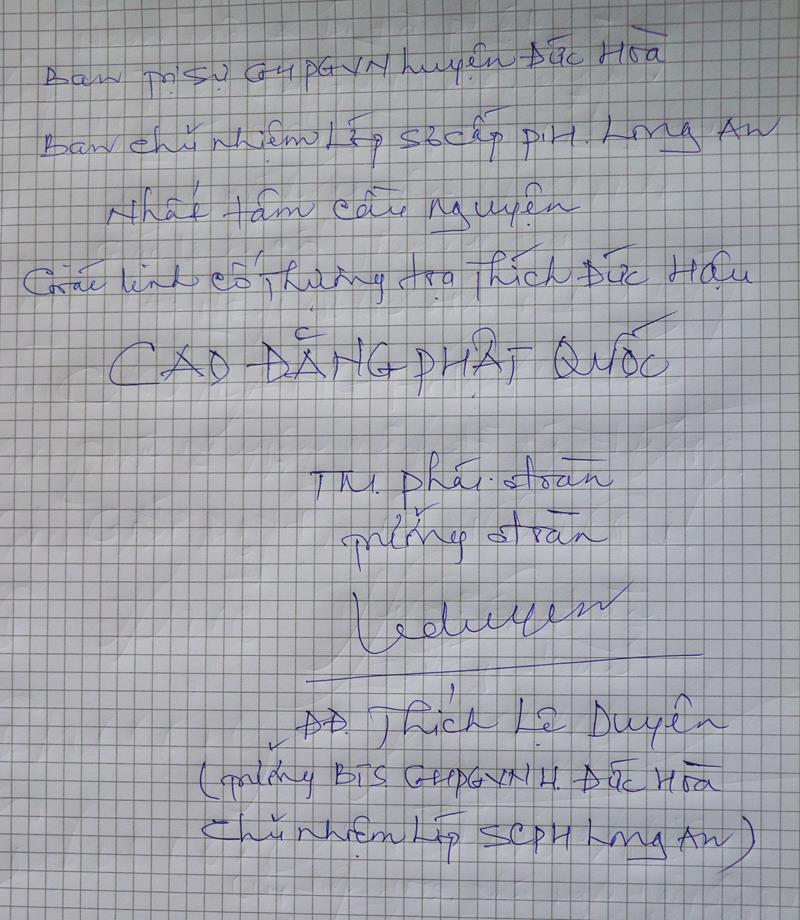 Ban trị sự GHPGVN huyện Đức Hoà
Ban chủ nhiệm Lớp Sơ cấp P.H. Long An
Nhất tâm cầu nguyện
Giác linh cố Thượng tọa Thích Đức Hậu
CAO ĐĂNG PHẬT QUỐC
TM. phái đoàn
trưởng đoàn
Leduyen
ĐĐ. Thích Lệ Duyên
(trưởng BTS GHPGVN H. Đức Hoà
Chủ nhiệm Lớp SCPH Long An)